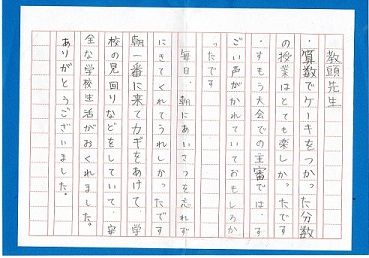 教頭先生
・算数でケーキをつかった分数
の授業はとても楽しかったです
・すもう大会での主審では、す
ごい声がかれていておもしろか
ったです
毎日、朝にあいさつを忘れず
にきてくれてうれしかったです
朝一番に来てカギをあけて、学
校の見回りなどをしていて、安
全な学校生活がおくれました。
ありがとうございました。